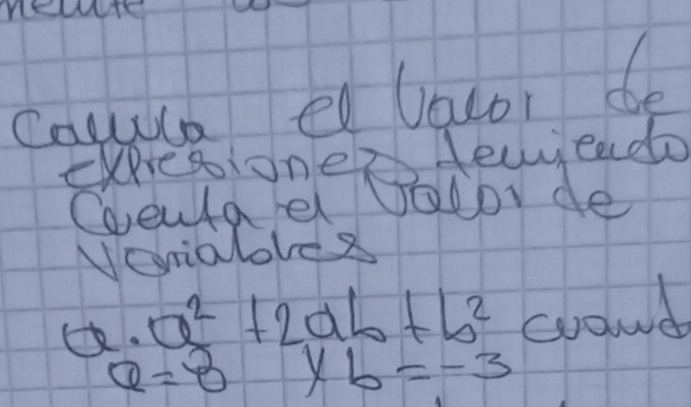 Calcula el valor de
expresiones teniendo
Cuenta el valor de
variables
a. a² + 2ab + b² cuand
a = 8 y b = -3